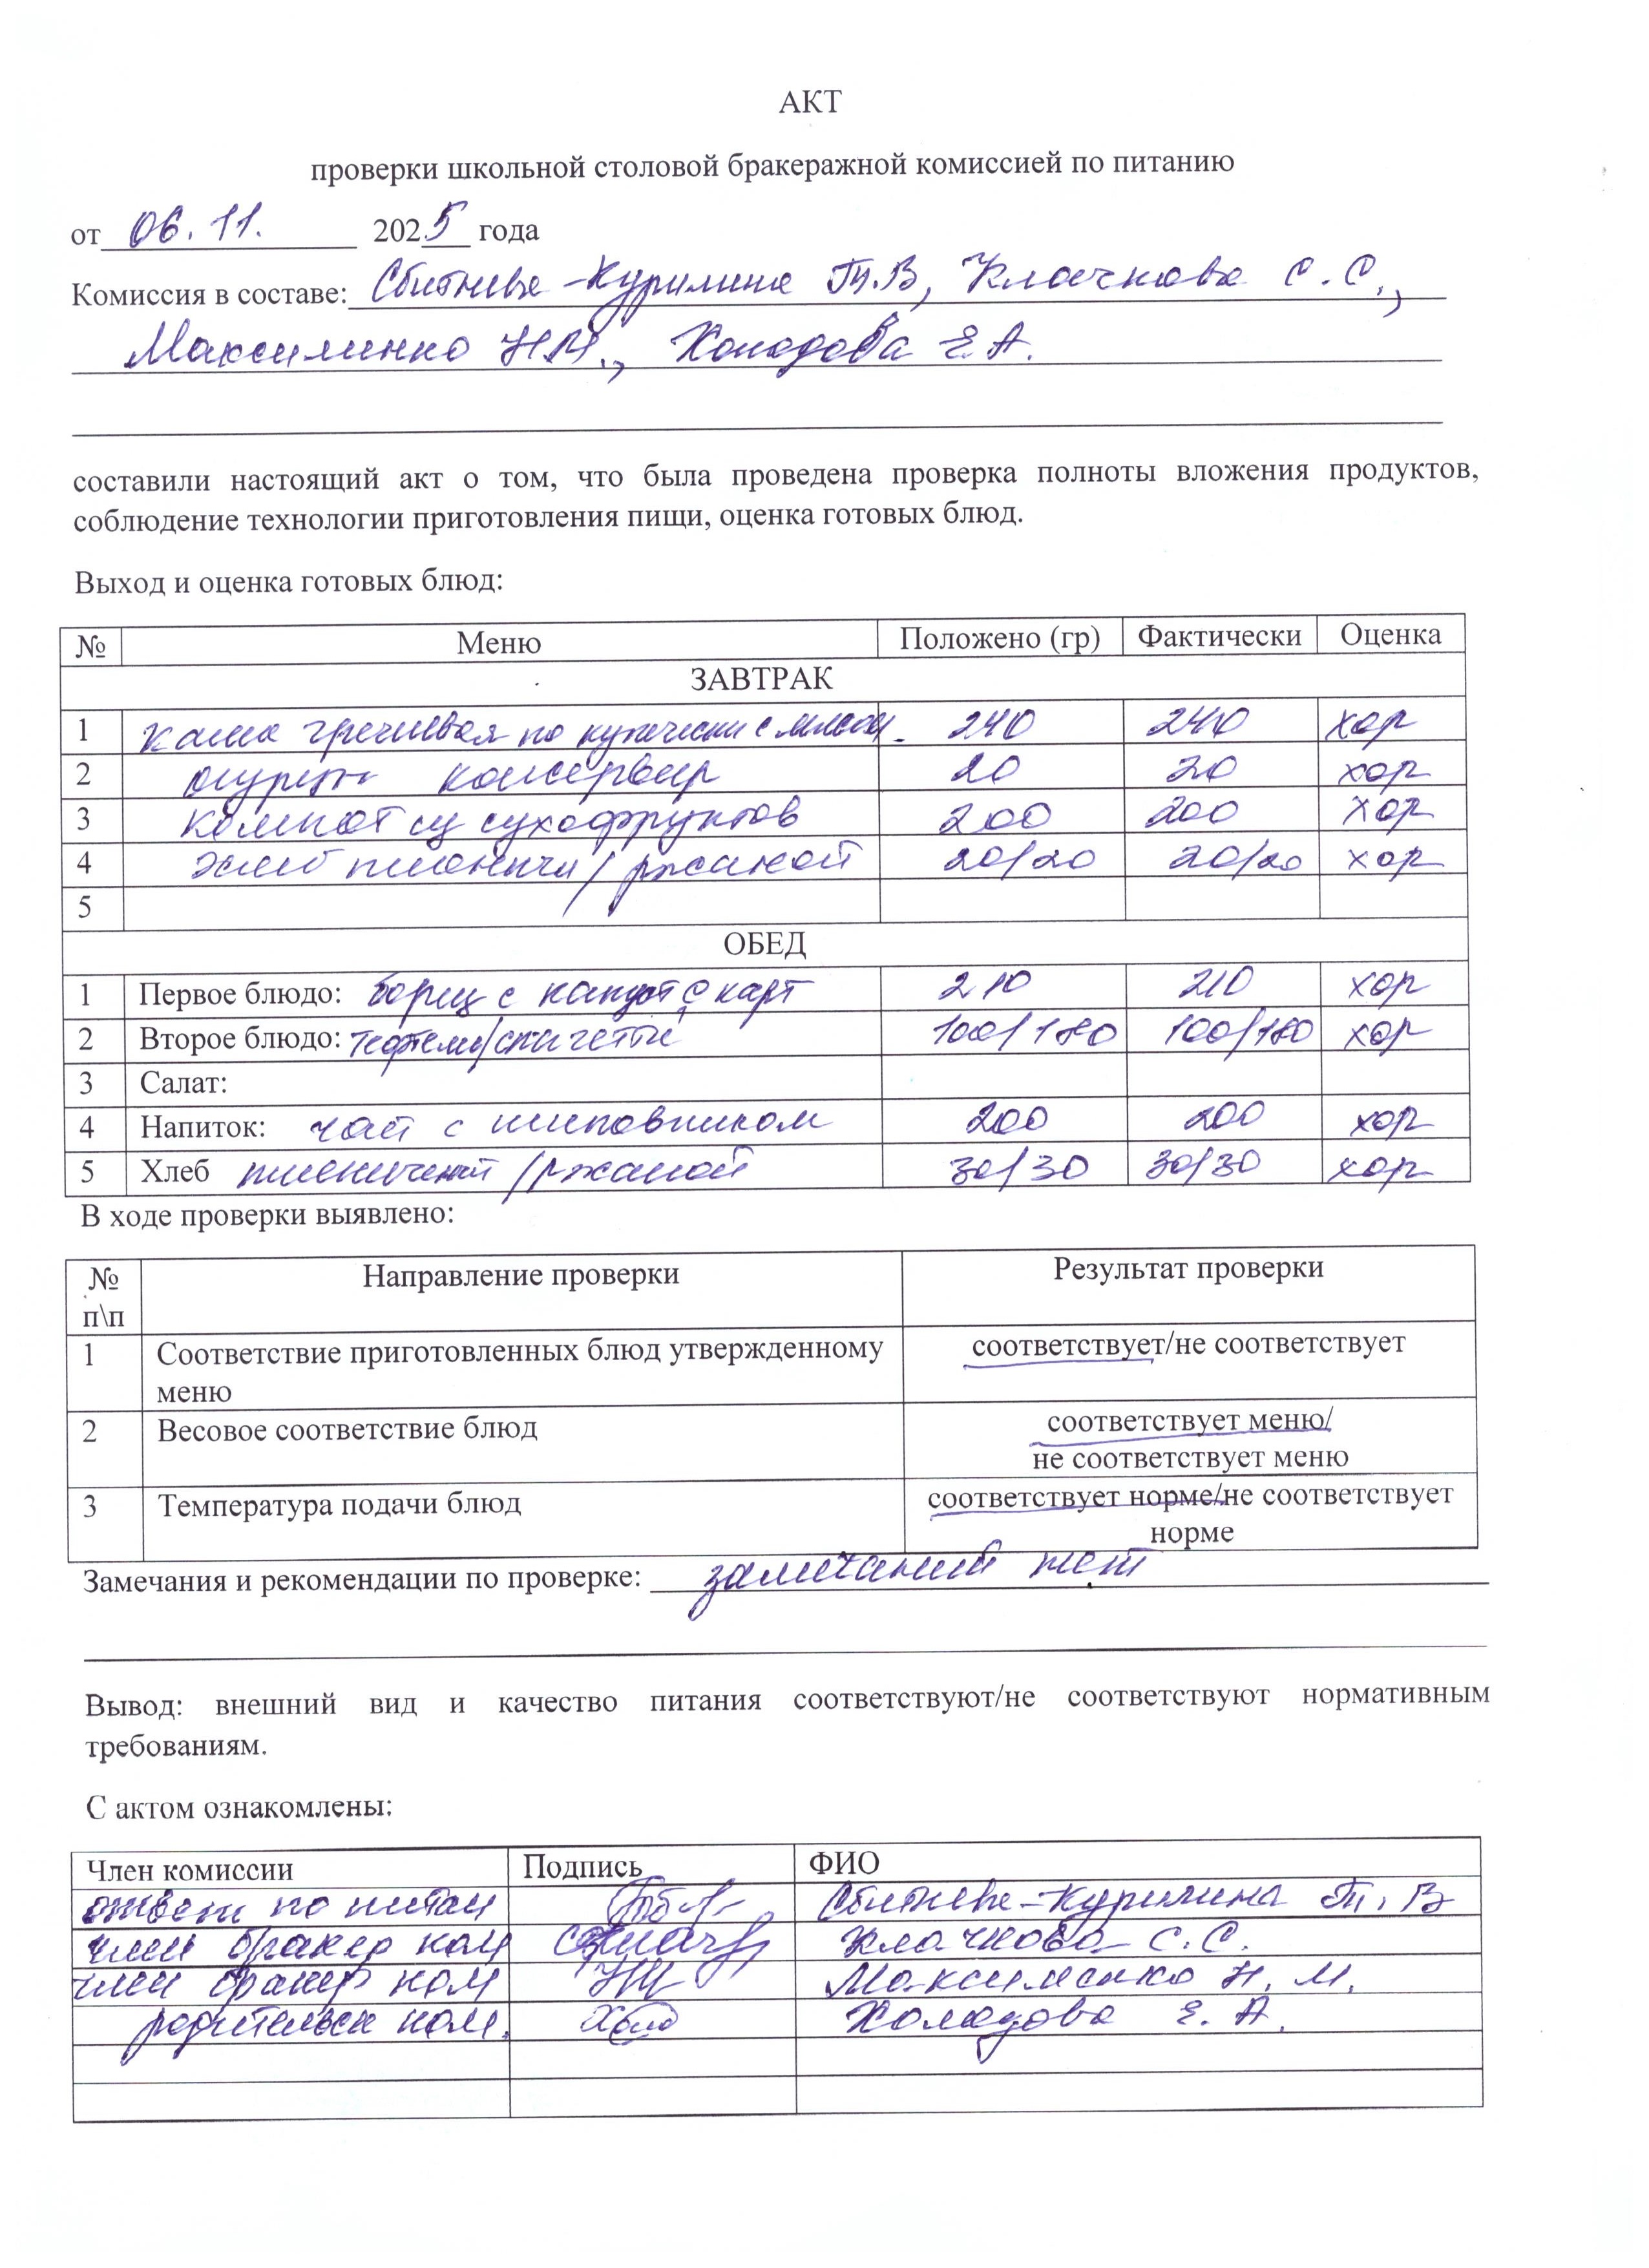 АКТ
проверки школьной столовой бракеражной комиссией по питанию
от 06.11. 2025 года
Комиссия в составе: Сбитнева-Курилина Т.В, Клочкова С.С.,
Максименко Н.М., Холодова Е.А.
составили настоящий акт о том, что была проведена проверка полноты вложения продуктов,
соблюдение технологии приготовления пищи, оценка готовых блюд.
Выход и оценка готовых блюд:
№ Меню Положено (гр) Фактически Оценка
ЗАВТРАК
1 каша гречневая по купечески с мясом 240 240 хор
2 огурец консервир 20 20 хор
3 компот из сухофруктов 200 200 хор
4 хлеб пшеничн/ржаной 20/20 20/20 хор
5
ОБЕД
1 Первое блюдо: борщ с капуст с карт 210 210 хор
2 Второе блюдо: тефтели/спагетти 100/180 100/180 хор
3 Салат:
4 Напиток: чай с шиповником 200 200 хор
5 Хлеб пшеничный/ржаной 30/30 30/30 хор
В ходе проверки выявлено:
№ Направление проверки Результат проверки
п\п
1 Соответствие приготовленных блюд утвержденному соответствует/не соответствует
меню
2 Весовое соответствие блюд соответствует меню/
не соответствует меню
3 Температура подачи блюд соответствует норме/не соответствует
норме
Замечания и рекомендации по проверке: замечаний нет
Вывод: внешний вид и качество питания соответствуют/не соответствуют нормативным
требованиям.
С актом ознакомлены:
Член комиссии Подпись ФИО
ответ по питан Сбитнева-Курилина Т.В
член бракер ком Клочкова С.С.
член бракер ком Максименко Н.М.
родительск ком. Холодова Е.А.